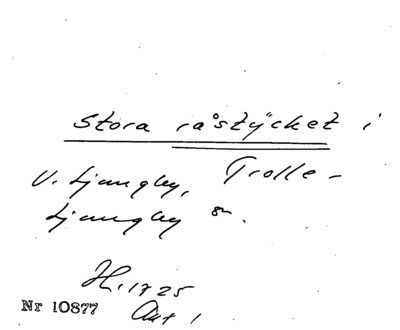 Stora råstycket i
V. Ljungby, Trolle-
Ljungby sn.
Hs. 1725
Nr 10877 Akt 1